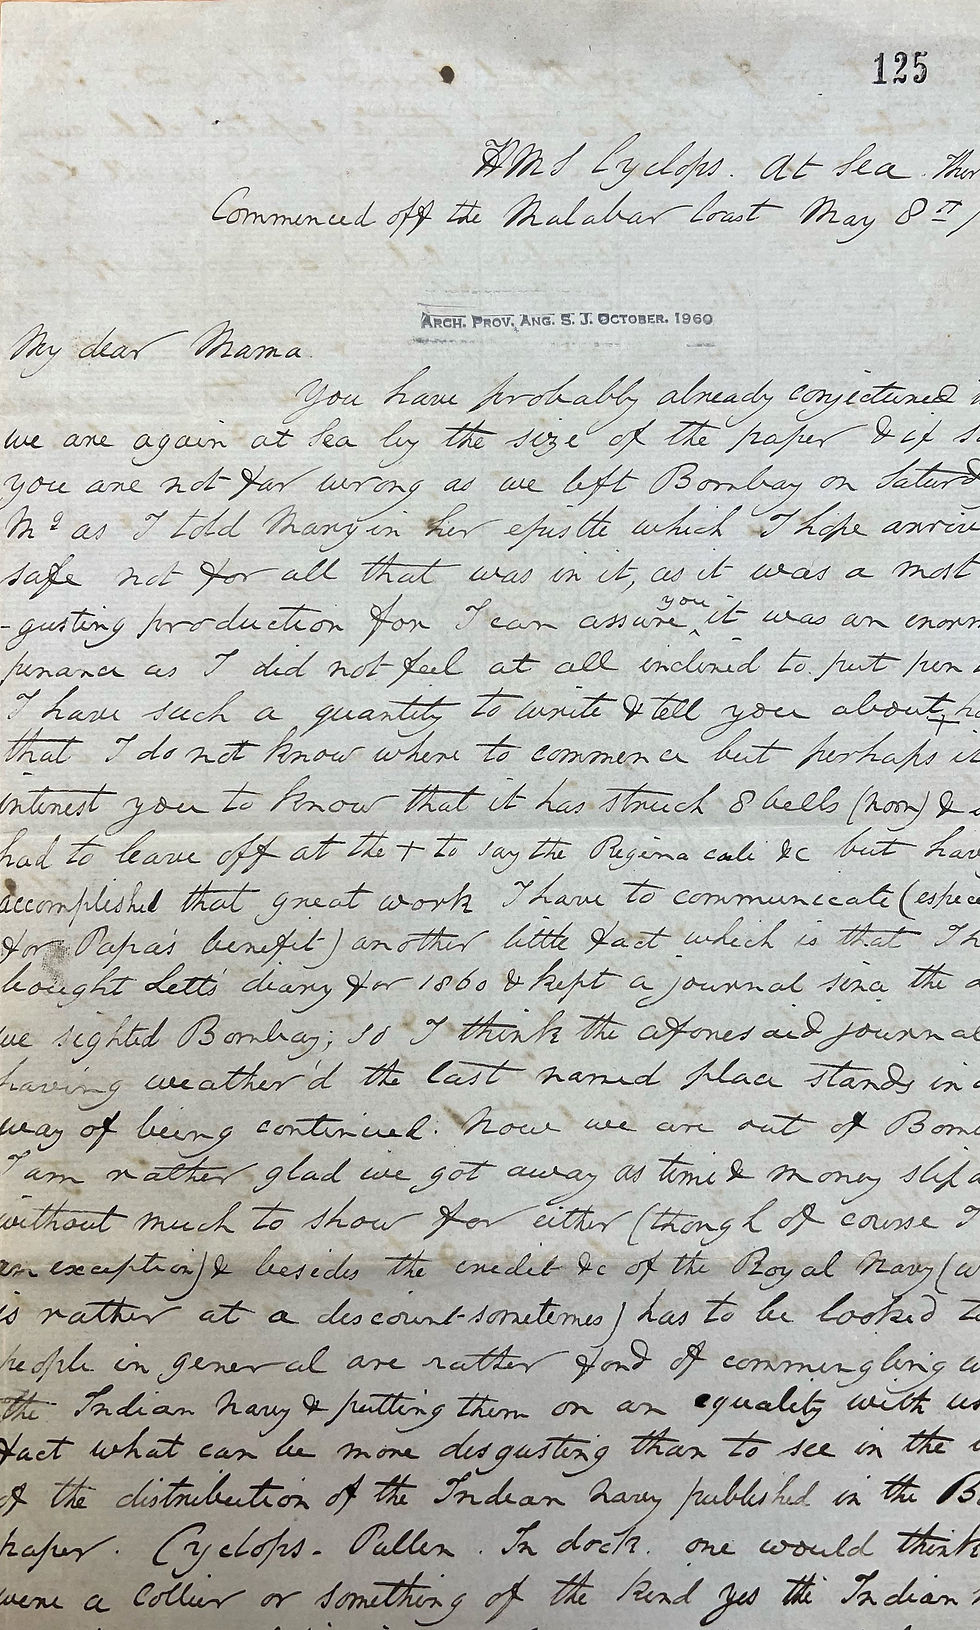 125
HMS Cyclops. At Sea Ther
Commenced off the Malabar Coast May 8th /
ARCH. PROV. ANG. S. J. OCTOBER. 1960
My dear Mama
You have probably already conjectured
we are again at Sea by the size of the paper & if s
you are not far wrong as we left Bombay on Saturd
as I told Mary in her epistle which I hope arriv
safe not for all that was in it, as it was a most
-gusting production for I can assure you it was an enorm
penance as I did not feel at all inclined to put pen
I have such a quantity to write & tell you about +
that I do not know where to commence but perhaps it
interest you to know that it has struck 8 bells (noon) &
had to leave off at the + to say the Regina celi &c but hav
accomplished that great work I have to communicate (espec
for Papa's benefit) another little fact which is that I h
bought Letts' diary for 1860 & kept a journal since the d
we sighted Bombay; so I think the aforesaid journal
having weather'd the last named place stands in a
way of being continued. Now we are out of Bom
I am rather glad we got away as time & money slip a
without much to show for either (though of course I
an exception) & besides the credit &c of the Royal Navy (w
is rather at a discount sometimes) has to be looked to
people in general are rather fond of commingling w
the Indian Navy & putting them on an equality with us
fact what can be more disgusting than to see in the
of the distribution of the Indian Navy published in the B
paper. Cyclops - Pullen. In dock. one would think
were a Collier or something of the kind yes the Indian N